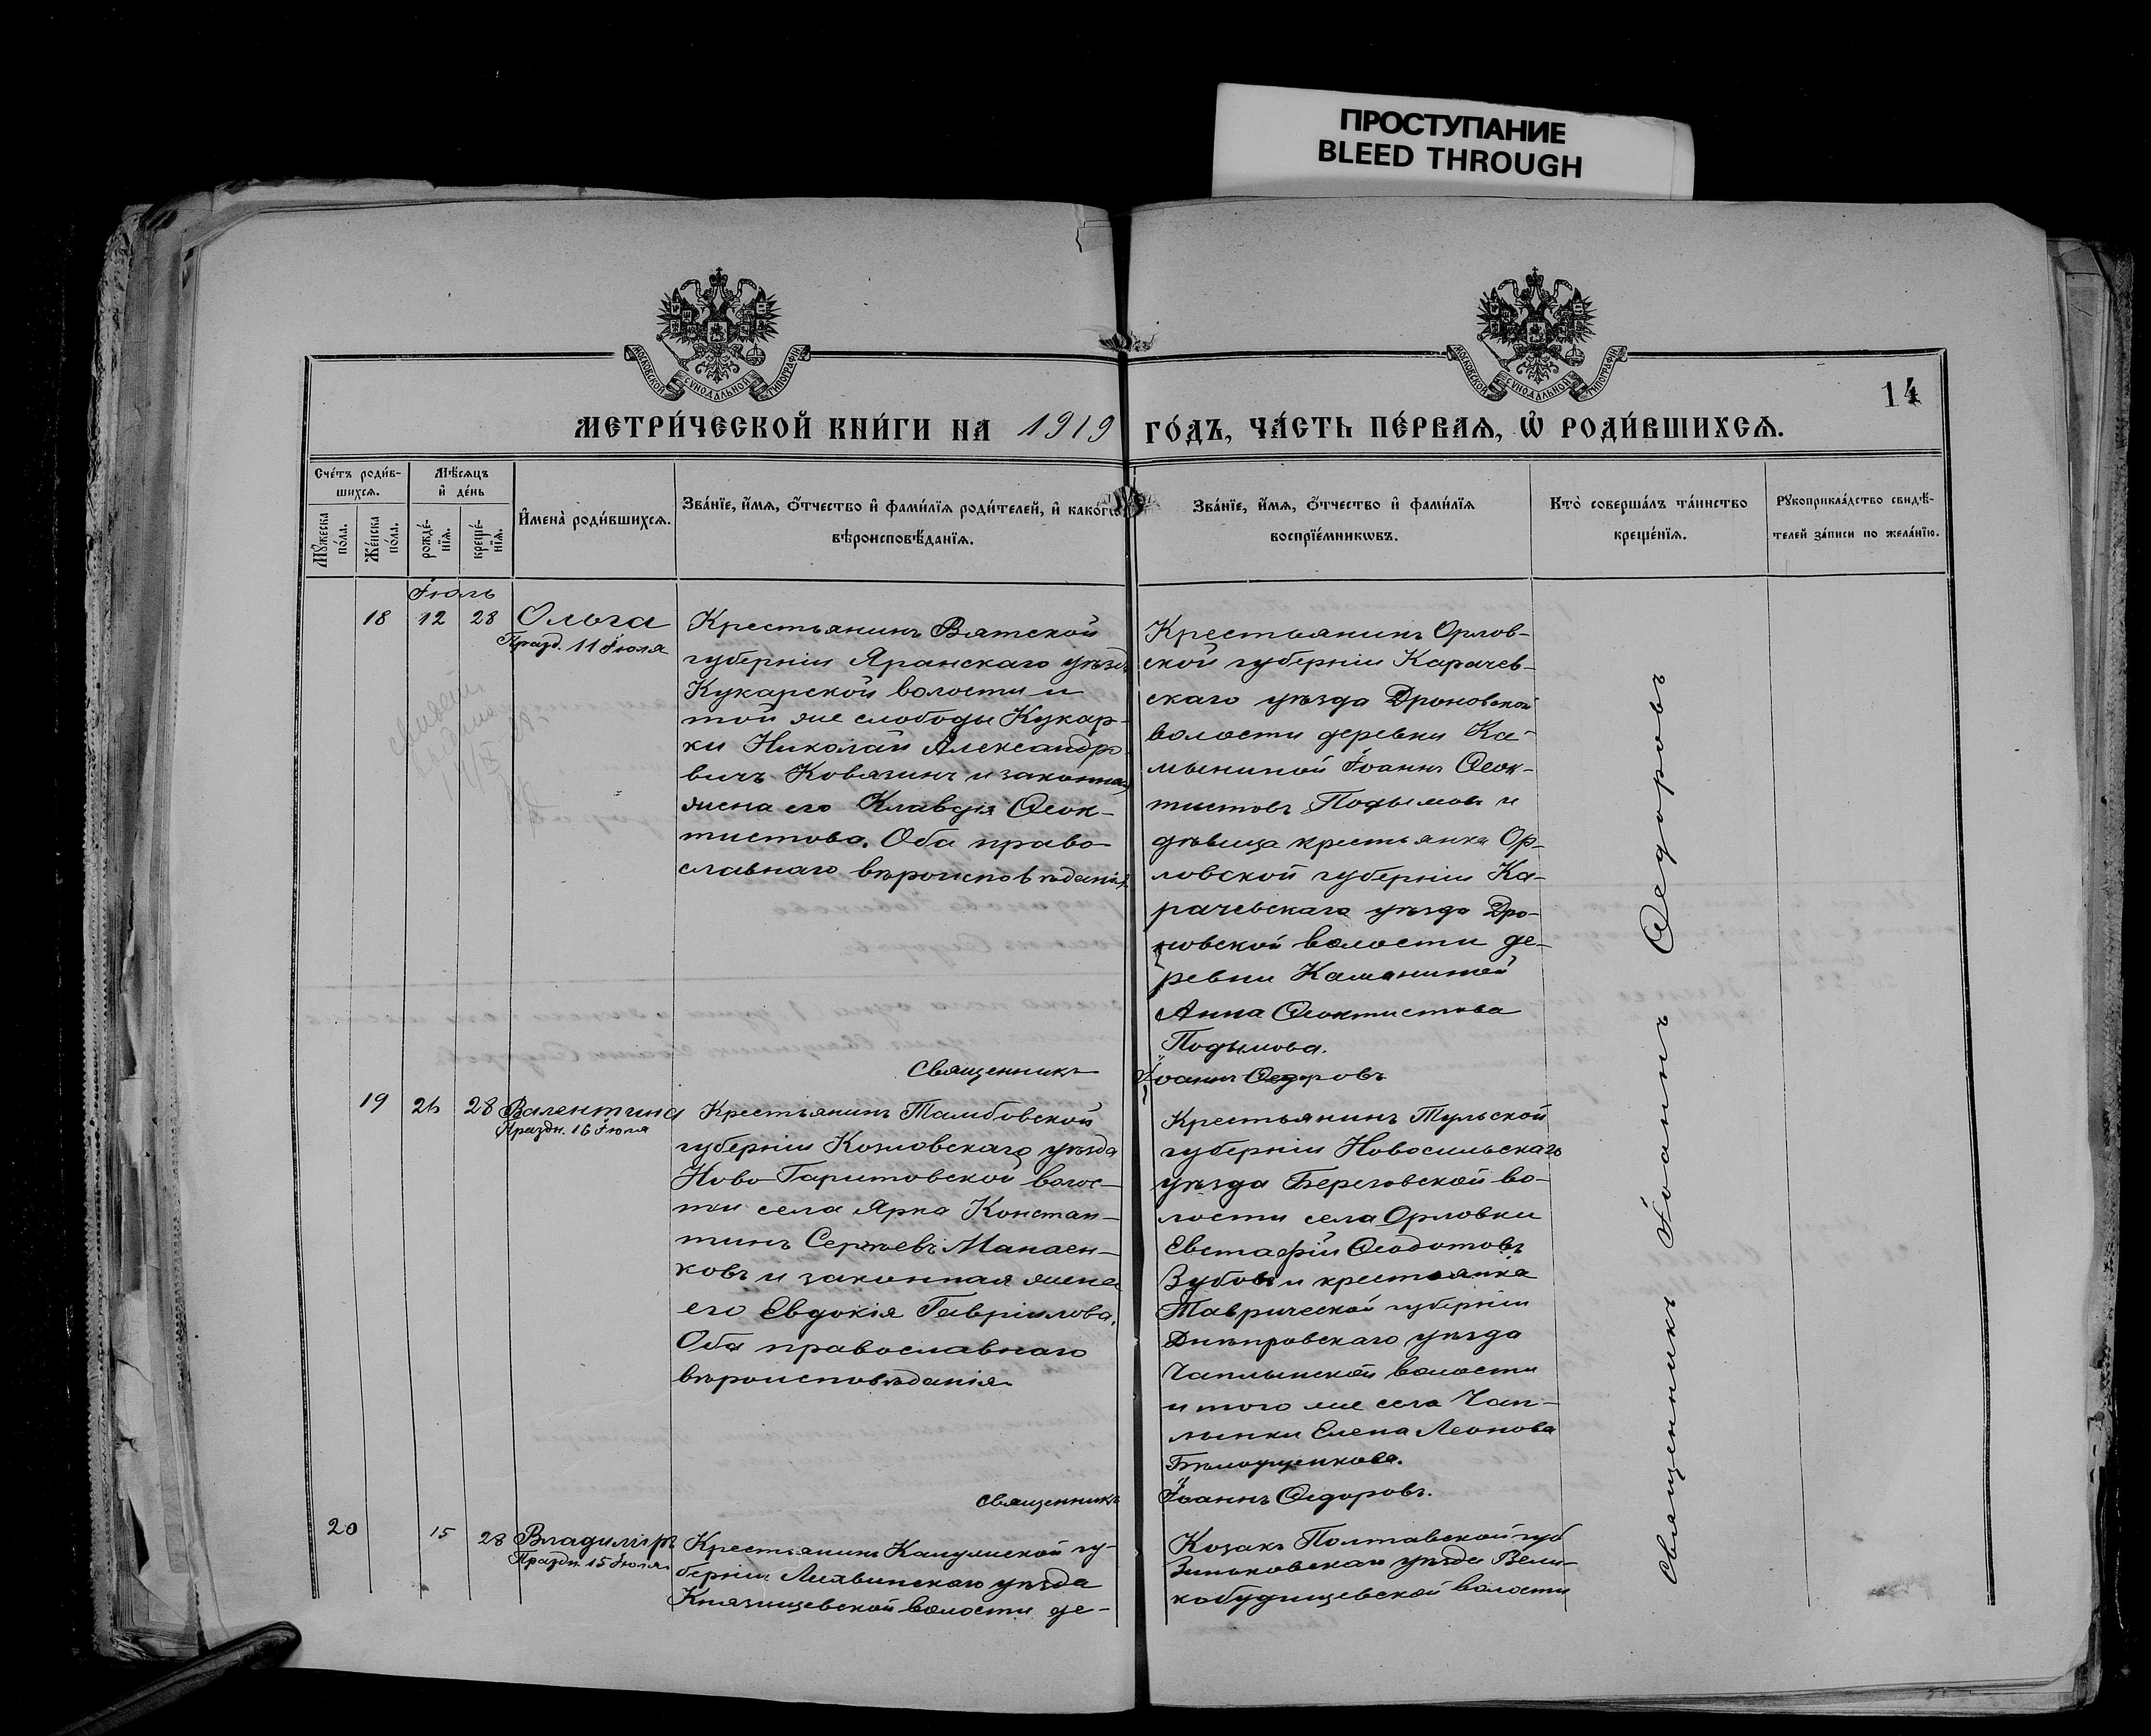 ПРОСТУПАНИЕ
BLEED THROUGH
МОСКОВСКОЙ СѴНОДАЛЬНОЙ ТИПОГРАФІИ
МОСКОВСКОЙ СѴНОДАЛЬНОЙ ТИПОГРАФІИ
14
МЕТРИ́ЧЕСКОЙ КНИ́ГИ НА 1919 ГО́ДЪ, ЧА́СТЬ ПЕ́РВАЯ, Ѡ҆ РОДИ́ВШИХСѦ.
Сче́тъ роди́в-
шихсѧ.
Мѣ́сѧцъ
и҆ де́нь
Мꙋ́жеска по́ла.
Же́нска по́ла.
рожде́-нїѧ.
креще́-нїѧ.
И҆мена̀ роди́вшихсѧ.
Зва́нїе, и҆́мѧ, ѻ҆́тчество и҆ фами́лїѧ роди́телей, и҆ како́гѡ
вѣроисповѣ́данїѧ.
Зва́нїе, и҆́мѧ, ѻ҆́тчество и҆ фами́лїѧ
воспрїе́мникѡвъ.
Кто̀ соверша́лъ та́инство
креще́нїѧ.
Рꙋкоприкла́дство свидѣ́-
телей за́писи по жела́нїю.
Іюль
18 12 28 Ольга
Празд. 11 Іюля
Крестьянинъ Вятской
губерніи Яранскаго уѣзда
Кукарской волости и
той же слободы Кукар-
ки Николай Александро
вичъ Ковязинъ и законная
жена его Клавдія Ѳеок-
тистова. Оба право-
славнаго вѣроисповѣданія.
Священникъ
Крестьянинъ Орлов-
ской губерніи Карачев-
скаго уѣзда Дроновской
волости деревни Ка-
мыниной Іоаннъ Ѳеок-
тистовъ Подымовъ и
дѣвица крестьянка Ор-
ловской губерніи Ка-
рачевскаго уѣзда Дро-
новской волости де-
ревни Каманиной
Анна Ѳеоктистова
Подымова.
Іоаннъ Ѳедоровъ
19 26 28 Валентина
Праздн. 16 Іюля
Крестьянинъ Тамбовской
губерніи Козловскаго уѣзда
Ново-Гаритовской волос-
ти села Ярка Констан-
тинъ Сергѣевъ Манаен-
ковъ и законная жена
его Евдокія Гавріилова.
Оба православнаго
вѣроисповѣданія
Священникъ
Крестьянинъ Тульской
губерніи Новосильскаго
уѣзда Береговской во-
лости села Орловки
Евстафій Ѳеодотовъ
Зубовъ и крестьянка
Таврической губерніи
Днѣпровскаго уѣзда
Чаплынской волости
и того же села Чап-
лынки Елена Леонова
Іоаннъ Ѳедоровъ.
20 15 28 Владиміръ
Праздн. 15 Іюля
Крестьянинъ Калужской гу-
берніи Лихвинскаго уѣзда
Князищевской волости де-
Козакъ Полтавской губ
Зиньковскаго уѣзда Вели-
кобудищевской волости
Священникъ Іоаннъ Ѳедоровъ